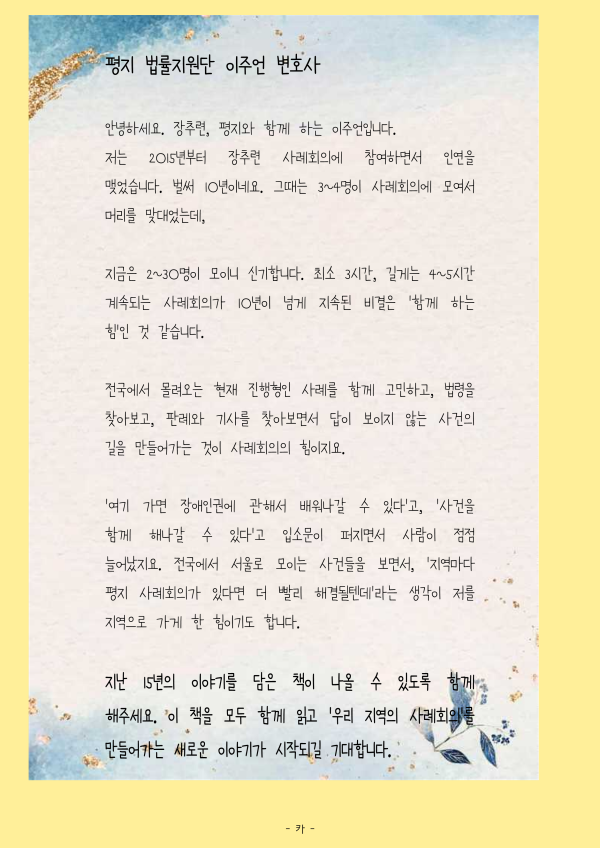 평지 법률지원단 이주언 변호사
안녕하세요. 장추련, 평지와 함께 하는 이주언입니다.
저는 2015년부터 장추련 사례회의에 참여하면서 인연을
맺었습니다. 벌써 10년이네요. 그때는 3~4명이 사례회의에 모여서
머리를 맞대었는데,
지금은 2~30명이 모이니 신기합니다. 최소 3시간, 길게는 4~5시간
계속되는 사례회의가 10년이 넘게 지속된 비결은 '함께 하는
힘'인 것 같습니다.
전국에서 몰려오는 현재 진행형인 사례를 함께 고민하고, 법령을
찾아보고, 판례와 기사를 찾아보면서 답이 보이지 않는 사건의
길을 만들어가는 것이 사례회의의 힘이지요.
'여기 가면 장애인권에 관해서 배워나갈 수 있다'고, '사건을
함께 해나갈 수 있다'고 입소문이 퍼지면서 사람이 점점
늘어났지요. 전국에서 서울로 모이는 사건들을 보면서, '지역마다
평지 사례회의가 있다면 더 빨리 해결될텐데'라는 생각이 저를
지역으로 가게 한 힘이기도 합니다.
지난 15년의 이야기를 담은 책이 나올 수 있도록 함께
해주세요. 이 책을 모두 함께 읽고 '우리 지역의 사례회의'를
만들어가는 새로운 이야기가 시작되길 기대합니다.
- 카 -